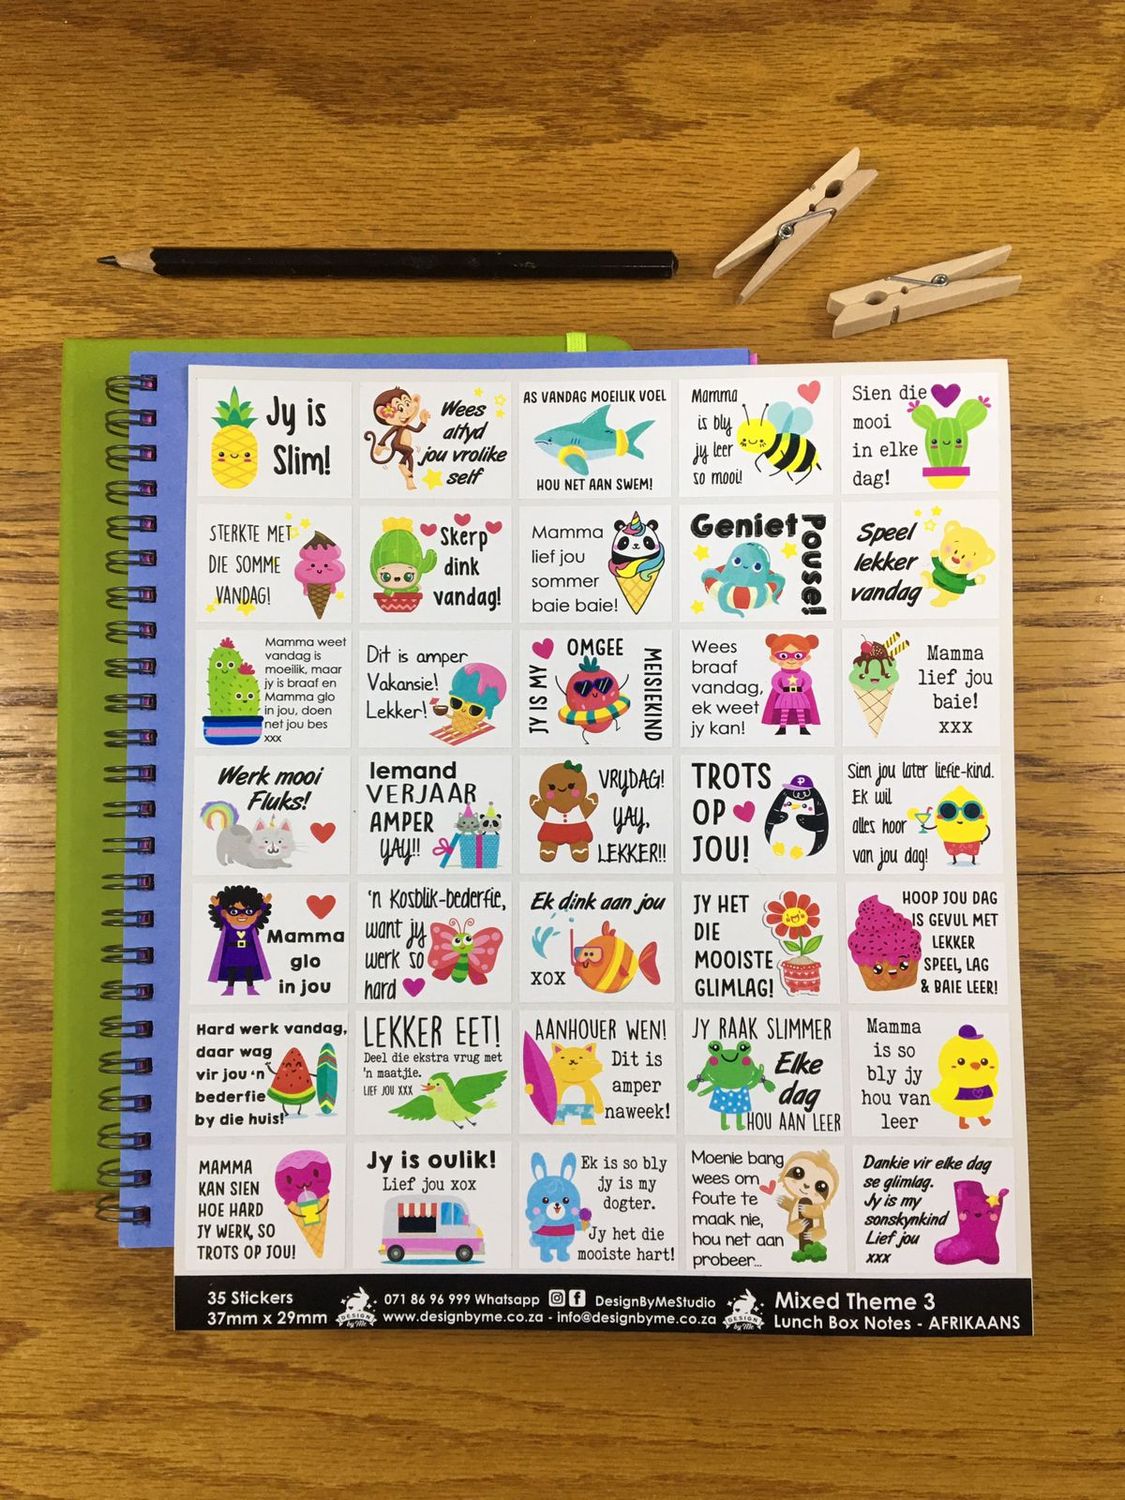 Jy is
Slim!
Wees
altyd
jou vrolike
self
AS VANDAG MOEILIK VOEL
HOU NET AAN SWEM!
Mamma
is bly
jy leer
so mooi!
Sien die
mooi
in elke
dag!
STERKTE MET
DIE SOMME
VANDAG!
Skerp
dink
vandag!
Mamma
lief jou
sommer
baie baie!
Geniet
Pouse!
Speel
lekker
vandag
Mamma weet
vandag is
moeilik, maar
jy is braaf en
Mamma glo
in jou, doen
net jou bes
xxx
Dit is amper
Vakansie!
Lekker!
JY IS MY
OMGEE
MEISIEKIND
Wees
braaf
vandag,
ek weet
jy kan!
Mamma
lief jou
baie!
xxx
Werk mooi
Fluks!
Iemand
VERJAAR
AMPER
YAY!!
VRYDAG!
YAY,
LEKKER!!
TROTS
OP
JOU!
P
Sien jou later liefie-kind.
Ek wil
alles hoor
van jou dag!
Mamma
glo
in jou
'n Kosblik-bederfie,
want jy
werk so
hard
Ek dink aan jou
xox
JY HET
DIE
MOOISTE
GLIMLAG!
HOOP JOU DAG
IS GEVUL MET
LEKKER
SPEEL, LAG
& BAIE LEER!
Hard werk vandag,
daar wag
vir jou 'n
bederfie
by die huis!
LEKKER EET!
Deel die ekstra vrug met
'n maatjie.
LIEF JOU XXX
AANHOUER WEN!
Dit is
amper
naweek!
JY RAAK SLIMMER
Elke
dag
HOU AAN LEER
Mamma
is so
bly jy
hou van
leer
MAMMA
KAN SIEN
HOE HARD
JY WERK, SO
TROTS OP JOU!
Jy is oulik!
Lief jou xox
Ek is so bly
jy is my
dogter.
Jy het die
mooiste hart!
Moenie bang
wees om
foute te
maak nie,
hou net aan
probeer...
Dankie vir elke dag
se glimlag.
Jy is my
sonskynkind
Lief jou
xxx
35 Stickers
37mm x 29mm
DESIGN
by Me
071 86 96 999 Whatsapp
DesignByMeStudio
www.designbyme.co.za - info@designbyme.co.za
DESIGN
by Me
Mixed Theme 3
Lunch Box Notes - AFRIKAANS